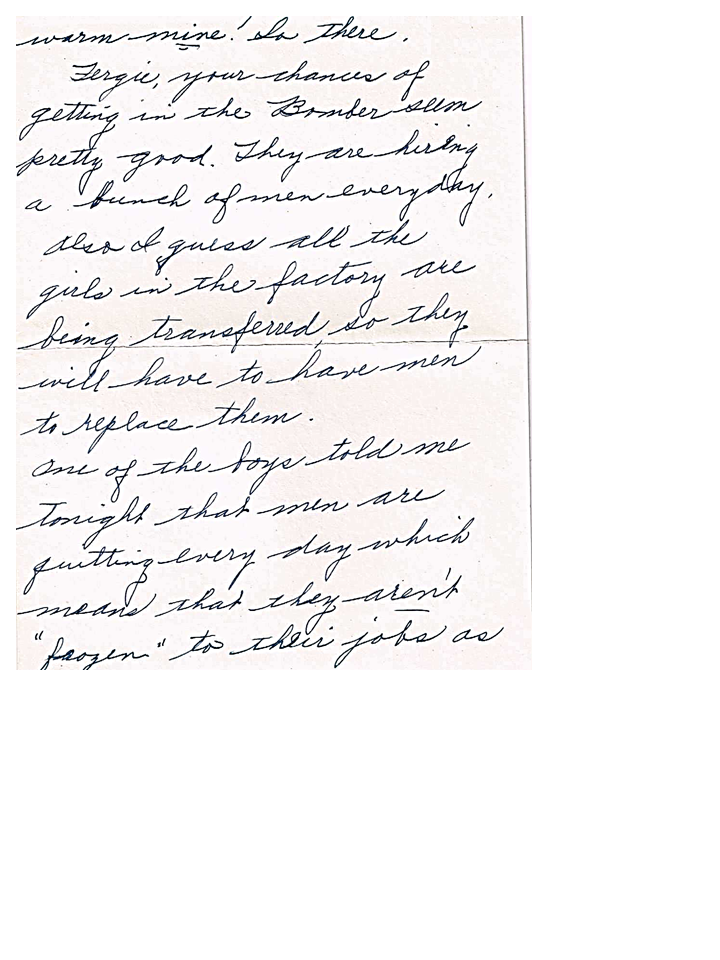 warm mine! So there.
Fergie, your chances of
getting in the Bomber seem
pretty good. They are hiring
a bunch of men everyday.
Also I guess all the
girls in the factory are
being transferred, so they
will have to have men
to replace them.
One of the boys told me
tonight that men are
quitting every day which
means that they aren't
"frozen" to their jobs as